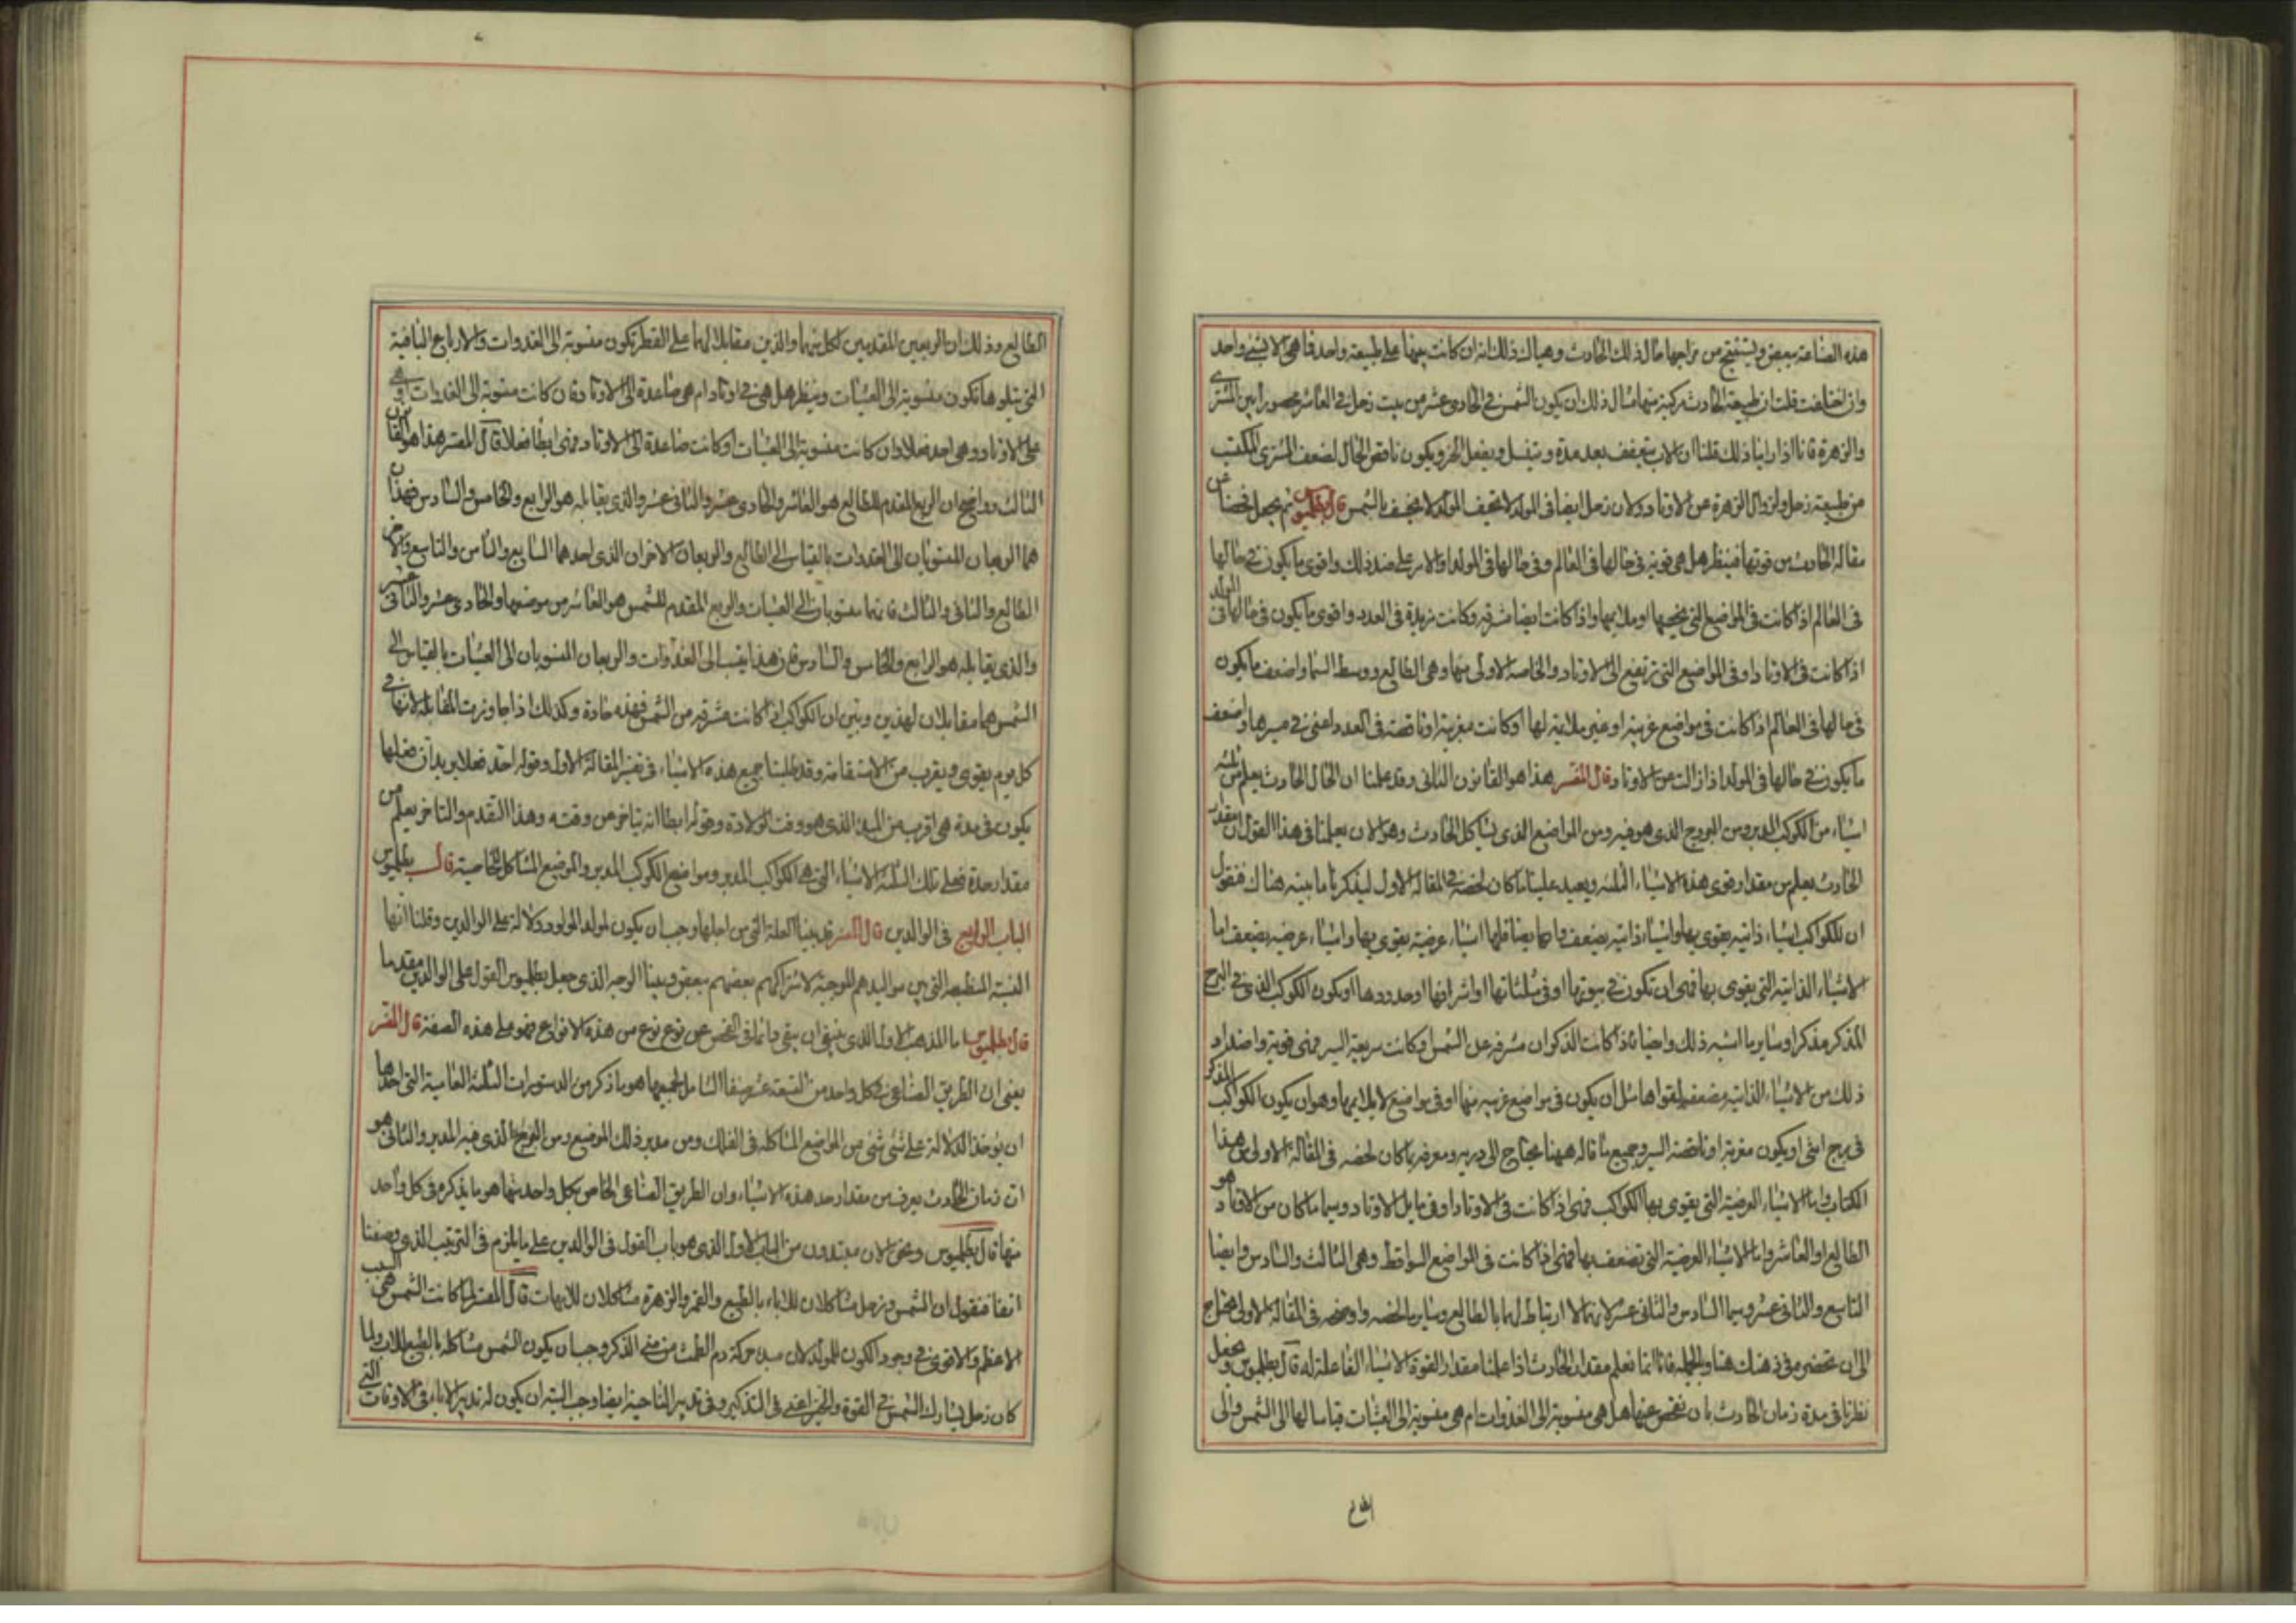 هذه الصناعة ببعض ويستنتج من مزاجها حال ذلك الحادث وهياك ذلك انه ان كانت جميعها على طبيعة واحدة فاهى الا شىء واحد
وان اختلفت قلت ان طبيعة الحادث مركبة منها مثال ذلك ان يكون الشمس فى الحادى عشر من بيت زحل فى العاشر محصورا بين المشترى
والزهرة فانا اذا راينا ذلك قلنا ان الاب يتعفف بعد مدة ويفعل الخير ويكون ناقص الحال لضعف المشترى المكتسب
من طبيعة زحل ولزوال الزهرة عن الاوتاد ولان زحل ايضا فى المولد قال بطلميوس ثم يجعل فحصنا عن
مقالة الحادث من قوتها فينظر هل هى قوية فى حالها فى العالم وفى حالها فى المولد او الامر على ضد ذلك واقوى ما يكون فى حالها
فى العالم اذا كانت فى المواضع التى تخصها او ملايمها واذا كانت ايضا مشرقة وكانت مزيدة فى العدد واقوى ما يكون فى حالها فى المولد
اذا كانت فى الاوتاد او فى المواضع التى ترتفع الى الاوتاد والخاصة الاولى منها وهى الطالع ووسط السما واضعف ما يكون
فى حالها فى العالم اذا كانت فى مواضع غريبة او غير ملايمة لها او كانت مغربة او ناقصة فى العدد اعنى فى مسيرها واضعف
ما يكون فى حالها فى المولد اذا زالت عن الاوتاد قال المفسر هذا هو القانون الثانى وقد علمنا ان الحال الحادث يعلم من ثلثة
اشياء من الكوكب المدبر ومن البروج الذى هو فيه ومن المواضع الذى يشاكل الحادث وهو الان يعلمنا فى هذا القول ان مقدار
الحادث يعلم من مقدار قوى هذه الاشياء الثلثة ويعيد علينا ما كان لخصه فى المقالة الاولى ليذكرنا ما بينه هناك فنقول
ان للكواكب اشياء ذاتية يقوى بها واشياء ذاتية يضعف بها وايضا فلها اشياء عرضية يقوى بها واشياء عرضية يضعف اما
الاشياء الذاتية التى يقوى بها فهى ان تكون فى بيوتها او فى مثلثاتها او اشرافها او حدودها او يكون الكوكب الذى فى البرج
المذكر مذكرا وساير ما اشبه ذلك وايضا فاذا كانت الذكران مشرقة عن الشمس وكانت سريعة السير فهى قوية واضداد
ذلك من الاشياء الذاتية مضعفة لقواها مثل ان يكون فى مواضع غريبة منها او فى مواضع لا يلايمها وهو ان يكون الكواكب المذكر
فى برج انثى او يكون مغربة او ناقصة السير وجميع ما قاله ههنا محتاج الى دربة ومعرفة بما كان لخصه فى المقالة الاولى من هذا
الكتاب واما الاشياء العرضية التى يقوى بها الكواكب فهى اذا كانت فى الاوتاد او فى مايل الاوتاد وسيما ما كان من الاوتاد هو
الطالع او العاشر واما الاشياء العرضية التى تضعف بها فهى اذا كانت فى المواضع السواقط وهى الثالث والسادس وايضا
التاسع والثانى عشر وسيما السادس والثانى عشر لانهما لا ارتباط لهما بالطالع وساير ما لخصه واوضحه فى المقالة الاولى محتاج
الى ان تحضره فى ذهنك هنا وبالجملة فانا انما نعلم مقدار الحادث اذا علمنا مقدار القوة الاشياء الفاعلة له قال بطلميوس ونجعل
نظرنا فى مدة زمان الحادث بان نفحص عنها هل هى منسوبة الى الغدوات ام هى منسوبة الى العشيات قياسا لها الى الشمس والى
الطالع
الطالع وذلك ان الربعين المقدمين لكل منهما والذين مقابلا لهما على القطر تكون منسوبة الى الغدوات والارباع الباقية
التى يتلوها تكون منسوبة الى العشيات وينظر هل هى فى اوتاد ام هى صاعدة الى الاوتاد فان كانت منسوبة الى الغدوات وهى
على الاوتاد وهى احد فعلا وان كانت منسوبة الى العشيات او كانت صاعدة الى الاوتاد فهى ابطا فعلا قال المفسر هذا هو القانون
الثالث وواضح ان الربع المقدم للطالع هو العاشر والحادى عشر والثانى عشر والذى يقابله هو الرابع والخامس والسادس فهذان
هما الربعان المنسوبان الى الغدوات بالقياس الى الطالع والربعان الاخران الذى احدهما السابع والثامن والتاسع والاخر
الطالع والثانى والثالث فانهما منسوبان الى العشيات والربع المقدم للشمس هو العاشر من موضعها والحادى عشر والثانى عشر
والذى يقابله هو الرابع والخامس والسادس فان هذا ينسب الى الغدوات والربعان المنسوبان الى العشيات بالقياس الى
الشمس هما مقابلان لهذين وبين ان الكواكب اذا كانت مشرقة من الشمس فهذه حادة وكذلك اذا جاوزت المقابلة لانها فى
كل يوم يقوى ويقرب من الاستقامة وقد طلبنا جميع هذه الاشياء فى تفسير المقالة الاولى وقوله احد فعلا يريد ان فعلها
يكون فى مدة هى اقرب من المبدا الذى هو وقت الولادة وقوله ابطا انه يتاخر عن وقته وهذا التقدم والتاخر يعلم من
مقدار حدة فعل تلك الثلثة الاشياء التى هى الكواكب المدبر ومواضع الكوكب المدبر والموضع المشاكل الخاصية قال بطلميوس
الباب الرابع فى الوالدين قال المفسر قد بينا العلة التى من اجلها وجب ان يكون لمولد المولود دلالة على الوالدين وقلنا انها
النسبة المنطبعة التى بين مواليدهم الموجبة لاشتراكهم بعضهم ببعض وبينا الوجه الذى جعل بطلميوس القول على الوالدين مقدما
قال بطلميوس اما المذهب الاول الذى ينبغى ان يبقى دائما فى الفحص عن نوع نوع من هذه الانواع فهو على هذه الصفة قال المفسر
يعنى ان الطريق الصناعى فى كل واحد من التسعة عشر صنفا الشامل لجميعها هو ما ذكر من الدستورات الثلثة العامية التى احدها
ان يؤخذ الدلالة على شىء شىء من المواضع المشاكلة فى الفلك ومن مدبر ذلك الموضع ومن البروج الذى فيه المدبر والثانى هو
ان زمان الحادث يعرف من مقدار حد هذه الاشياء وان الطريق الصناعى الخاص بكل واحد منها هو ما يذكره فى كل واحد
منها قال بطلميوس ونحن الان مبتدون من الباب الاول الذى هو باب القول فى الوالدين على ما يلزم فى الترتيب الذى وصفنا
انفا فنقول ان الشمس وزحل مشاكلان للاباء بالطبع والقمر والزهرة مشاكلان للامهات قال المفسر لما كانت الشمس هى السبب
الاعظم والاقوى فى وجود الكون للمولد لان مبدا حركة دم الطمث من منى الذكر وجب ان يكون الشمس مشاكلة بالطبع للاب ولما
كان زحل يشارك الشمس فى القوة والخير اعنى فى التذكير وفى تدبير الناحية ايضا وجب البتة ان يكون له تدبير الاباء فى الاوقات التى